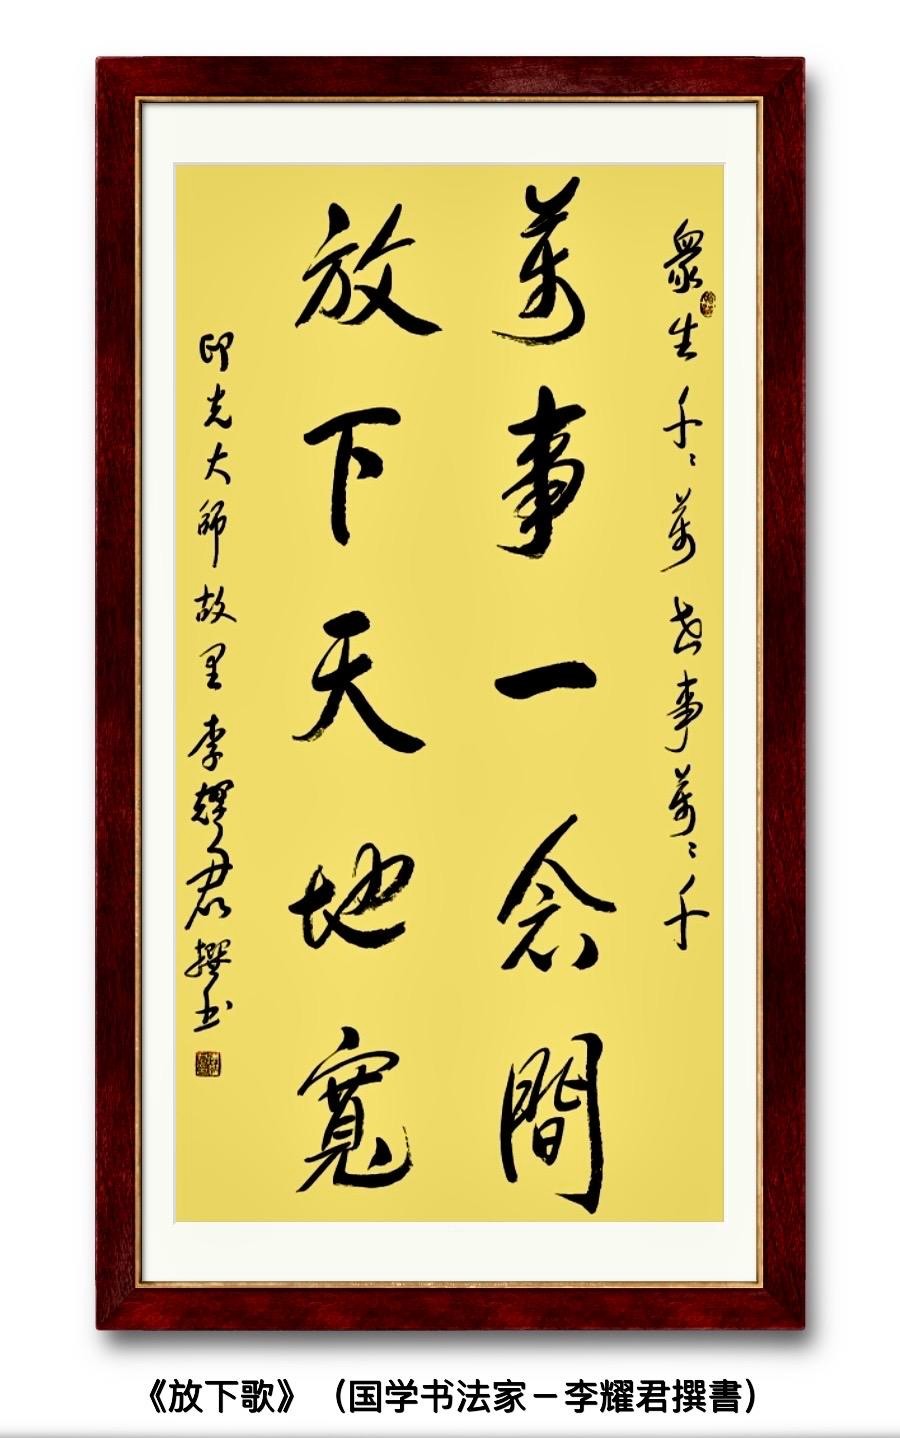 衆生千〻萬世事萬〻千
萬事一念間
放下天地寬
印光大師故里李耀君撰书
《放下歌》（国学书法家－李耀君撰書）